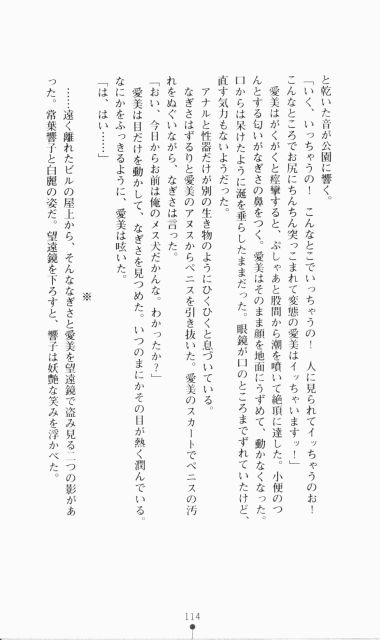 と乾いた音が公園に響く。
「いく、いっちゃうの！　こんなとこでいっちゃうの！　人に見られてイッちゃうのお！
こんなところでお尻にちんちん突っこまれて変態の愛美はイッちゃいますッ！」
愛美はがくがくと痙攣すると、ぷしゃあと股間から潮を噴いて絶頂に達した。小便のつ
んとする匂いがなぎさの鼻をつく。愛美はそのまま顔を地面にうずめて、動かなくなった。
口からは呆けたように涎を垂らしたままだった。眼鏡が口のところまでずれていたけど、
直す気力もないようだった。
アナルと性器だけが別の生き物のようにひくひくと息づいている。
なぎさはずるりと愛美のアヌスからペニスを引き抜いた。愛美のスカートでペニスの汚
れをぬぐいながら、なぎさは言った。
「おい、今日からお前は俺のメス犬だかんな。わかったか？」
愛美は目だけを動かして、なぎさを見つめた。いつのまにかその目が熱く潤んでいる。
なにかをふっきるように、愛美は呟いた。
「は、はい……」
※
……遠く離れたビルの屋上から、そんななぎさと愛美を望遠鏡で盗み見る二つの影があ
った。常葉響子と白麗の姿だ。望遠鏡を下ろすと、響子は妖艶な笑みを浮かべた。
114